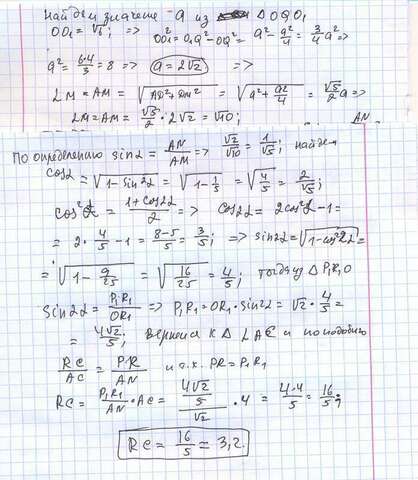 найдем значение a из Δ OQO₁
OO₁ = √6; => OO₁² = O₁Q² − OQ² = a² − a²/4 = 3/4 a² =>
a² = 6·4/3 = 8 => a = 2√2 =>
LM = AM = √(AD² + DM²) = √(a² + a²/4) = √5/2 a =>
LM = AM = √5/2 · 2√2 = √10; AN
По определению sin α = AN/AM => √2/√10 = 1/√5; найдем
cos α = √(1 − sin² α) = √(1 − 1/5) = √(4/5) = 2/√5;
cos² α = (1 + cos 2α)/2 => cos 2α = 2cos² α − 1 =
= 2 · 4/5 − 1 = (8 − 5)/5 = 3/5; => sin 2α = √(1 − cos² 2α) =
= √(1 − 9/25) = √(16/25) = 4/5; тогда из Δ P₁R₁O
sin 2α = P₁R₁/OR₁ => P₁R₁ = OR₁ · sin 2α = √2 · 4/5 =
= 4√2/5; вернемся к Δ LAC и по подобию
RC/AC = PR/AN и т.к. PR = P₁R₁
RC = P₁R₁/AN · AC = (4√2/5)/√2 · 4 = 4·4/5 = 16/5;
RC = 16/5 = 3,2.